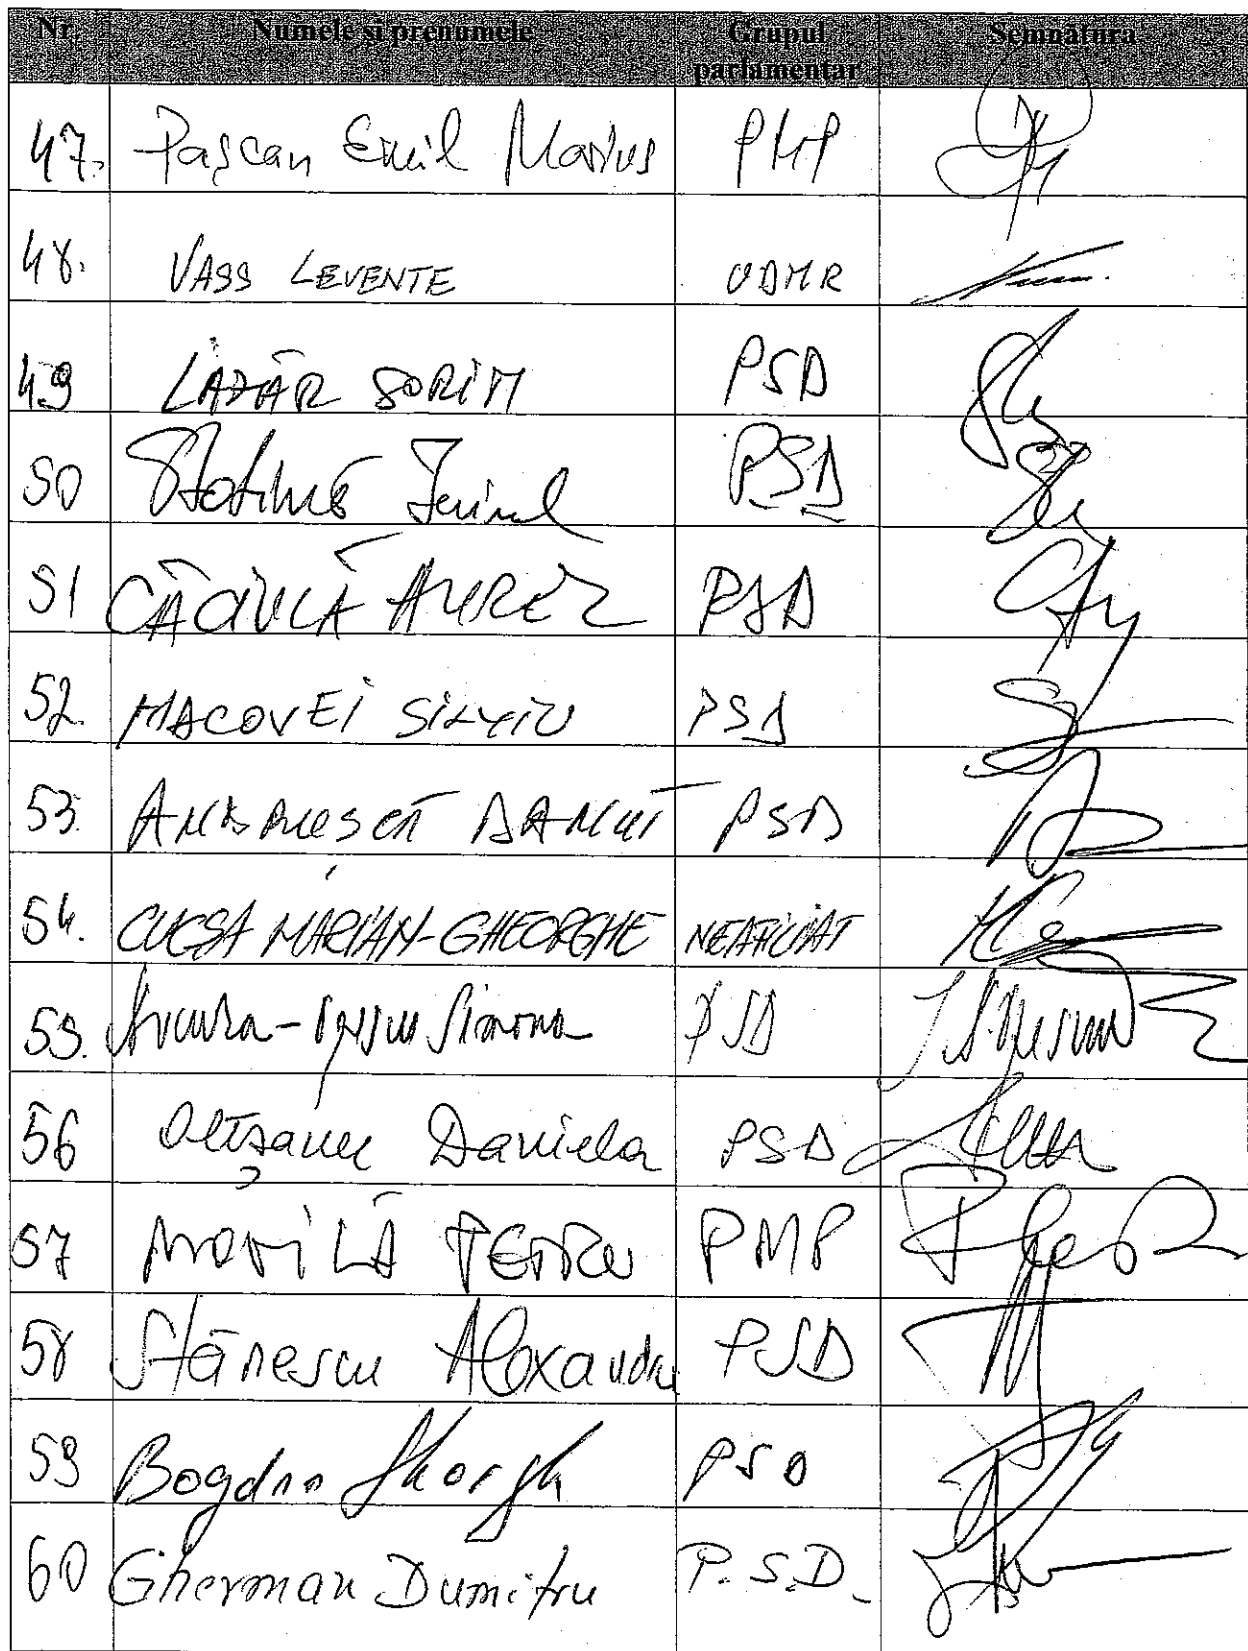 Nr. Numele și prenumele Grupul parlamentar Semnătura
47. Pașcan Emil Marius PMP
48. VASS LEVENTE UDMR
49 LAZĂR SORIN PSD
50 Ionel PSD
51 CĂCIULĂ AUREL PSD
52. MACOVEI SILVIU PSD
53. ANDRUSCĂ DĂNUȚ PSD
54. CUCȘA MARIAN-GHEORGHE NEAFILIAT
55. Simona PSD
56 Olteanu Daniela PSD
57 MOVILĂ PETRU PMP
58 Stănescu Alexandru PSD
59 Bogdan Gheorghe PSD
60 Gherman Dumitru P.S.D.